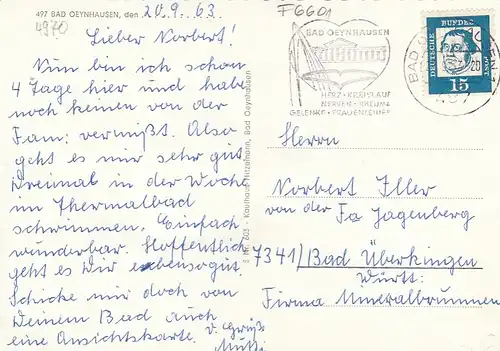 497 BAD OEYNHAUSEN, den 20.9.63
4970
F6601
Lieber Norbert!
Nun bin ich schon
4 Tage hier und habe
noch keinen von der
Fam: vermißt. Also
geht es mir sehr gut
Dreimal in der Woche
im Thermalbad
schwimmen. Einfach
wunderbar. Hoffentlich
geht es Dir ebensogut.
Schicke mir doch von
Deinem Bad auch
eine Ansichtskarte. v. Grüße
Mutti
Kaufhaus Hitzemann, Bad Oeynhausen
BAD OEYNHAUSEN
HERZ · KREISLAUF
NERVEN · RHEUMA
GELENKE · FRAUENLEIDEN
DEUTSCHE BUNDESPOST
15
Herrn
Norbert Iller
von der Fa Jagenberg
7341/Bad Überkingen
Württ:
Firma Mineralbrunnen